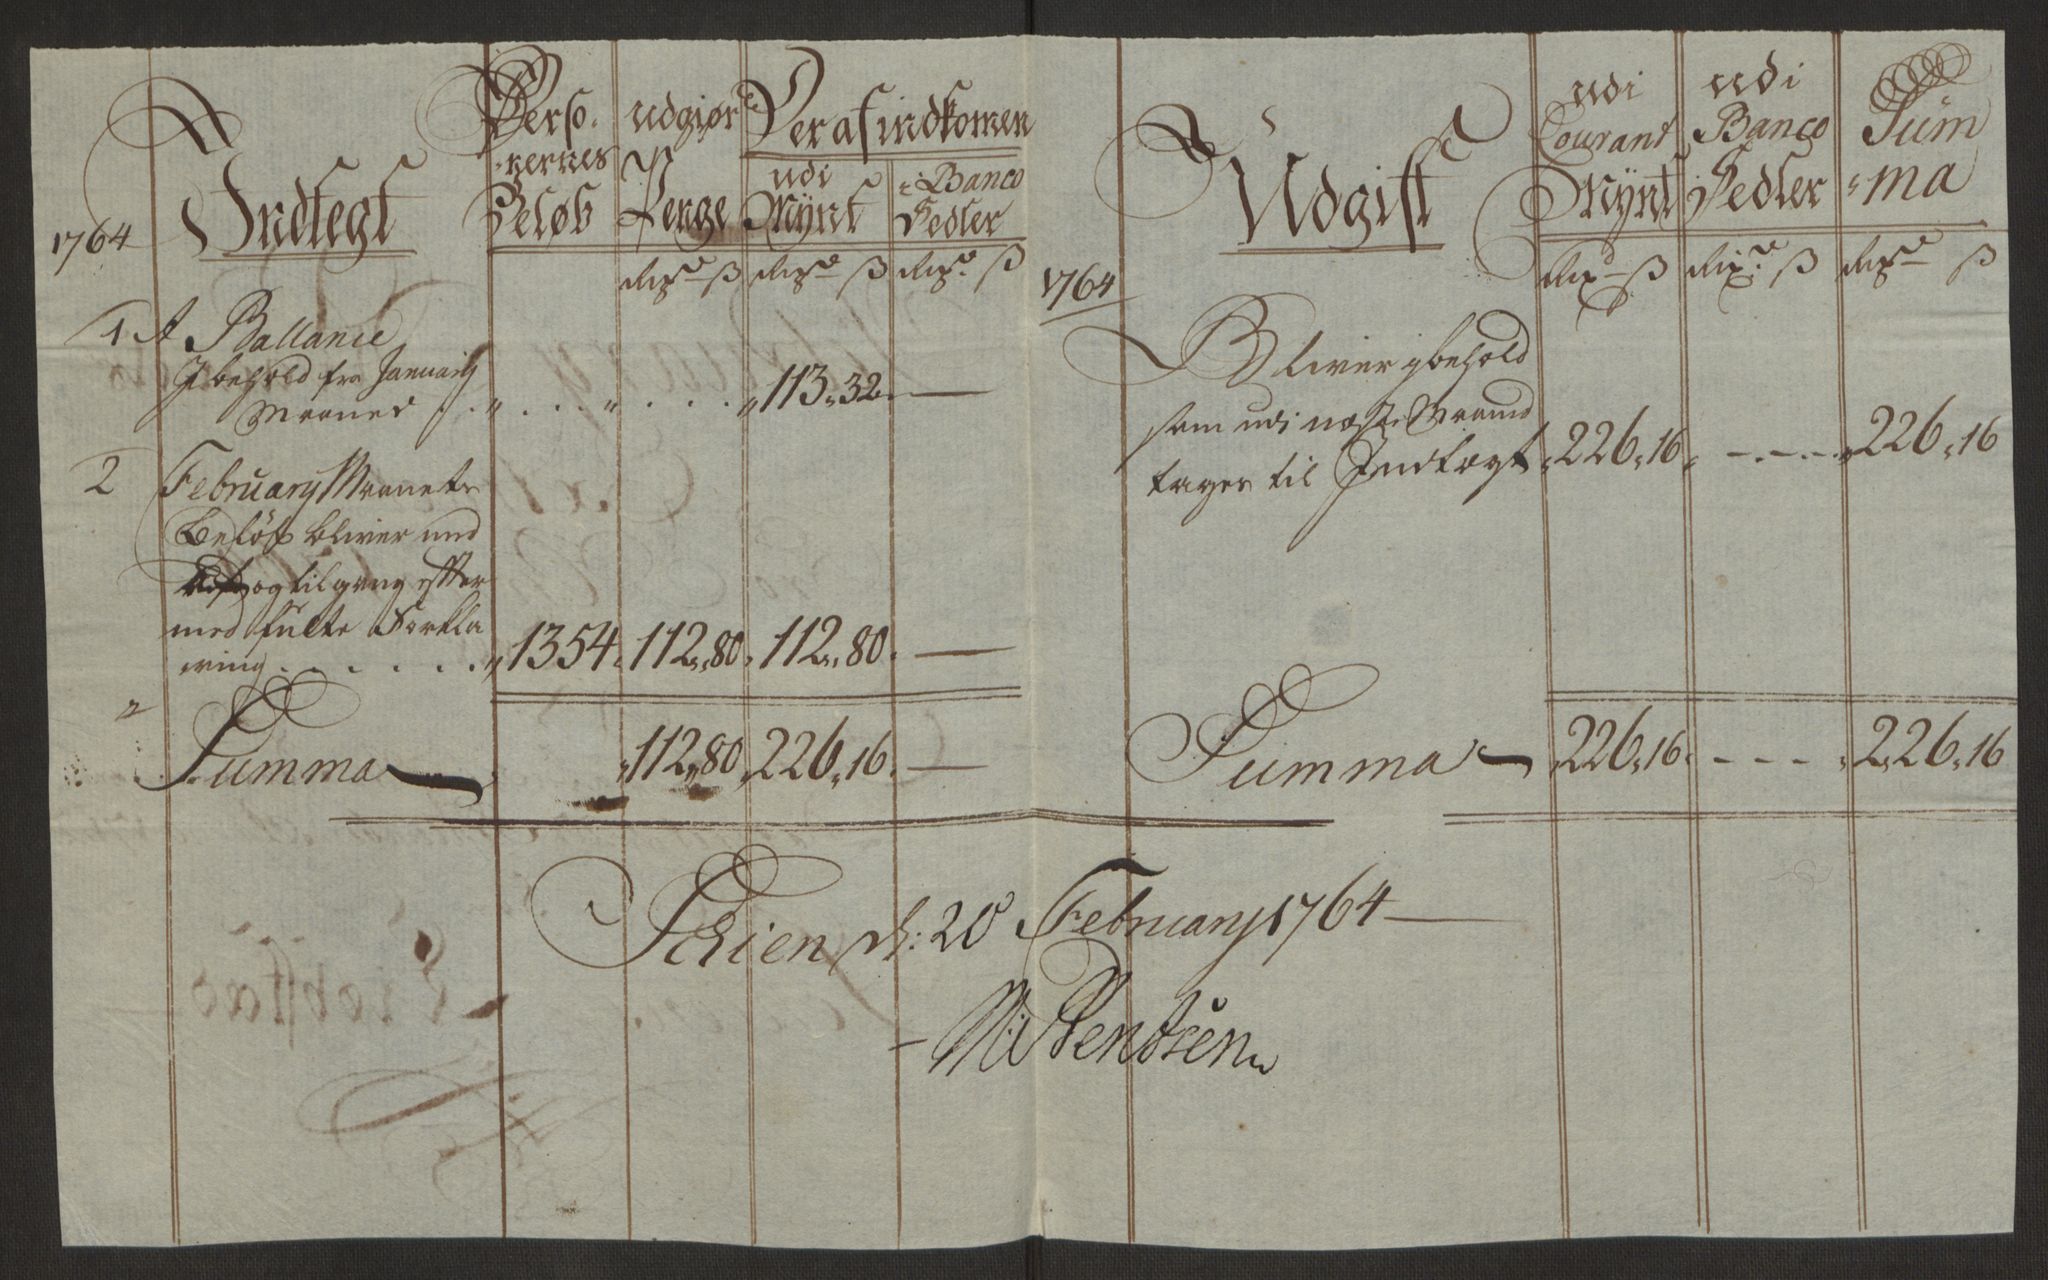 1764
Indtegt
Perso-
nernes
Beløb
Udgiør
Penge
Deraf indkomen
udi
Mÿnt
i Banco
Sedler
Rixd ß
Rixd ß
Rixd ß
1 A Ballance
J behold fra January
Maaned . . „ . . . „ . . . . „ 113 „ 32 —
2 February Maaneds
Beløb bliver med
og tilgang efter
med fulte Forkla
ring . . . . . „ 1354 „ 112 „ 80 „ 112 „ 80 —
Summa „ 112 „ 80 „ 226 „ 16 —
1764
Udgift
udi
Courant
Mÿnt
udi
Banco
Sedler
Sum
ma
Rixd ß
Rixd ß
Rixd ß
Bliver j behold
som udi næste Maaned
tages til Indtægt „ 226 „ 16 „ - - - - „ 226 „ 16
Summa „ 226 „ 16 „ - - - „ 226 „ 16
Schien d: 20 February 1764